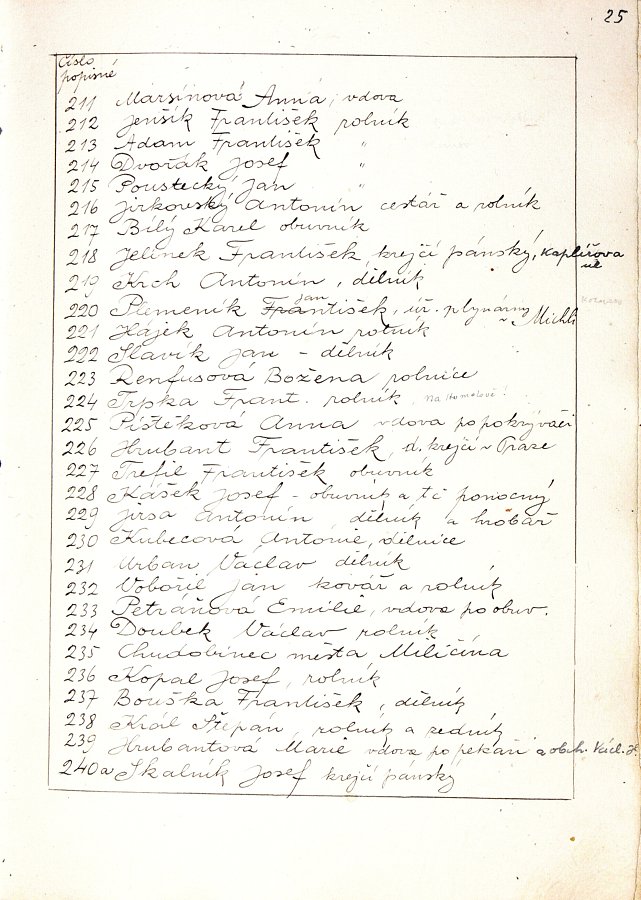 25
Číslo
popisné
211 Maršínová Anna, vdova
212 Jenšík František rolník
213 Adam František "
214 Dvořák Josef "
215 Poustecký Jan "
216 Jirkovský Antonín cestář a rolník
217 Bílý Karel obuvník
218 Jelínek František krejčí pánský, Kaplířova
ul
219 Krch Antonín, dělník
Jan
220 Plemeník František, úř. plynárny v Michli
221 Hájek Antonín rolník
222 Slavík Jan - dělník
223 Renfusová Božena rolnice
224 Trpka Frant. rolník, Na Homolově!
225 Pištěková Anna vdova po pokrývači
226 Hrubant František, d. krejčí v Praze
227 Trefil František obuvník
228 Kášek Josef - obuvník a t.č. ponocný
229 Jirsa Antonín, dělník a hrobař
230 Kubecová Antonie, dělnice
231 Urban Václav dělník
232 Vobořil Jan kovář a rolník
233 Petráňová Emilie, vdova po obuv.
234 Doubek Václav rolník
235 Chudobinec města Miličína
236 Kopal Josef, rolník
237 Bouška František, dělník
238 Král Štěpán, rolník a zedník
239 Hrubantová Marie vdova po pekaři a obch. Václ. H.
240a Skalník Josef krejčí pánský